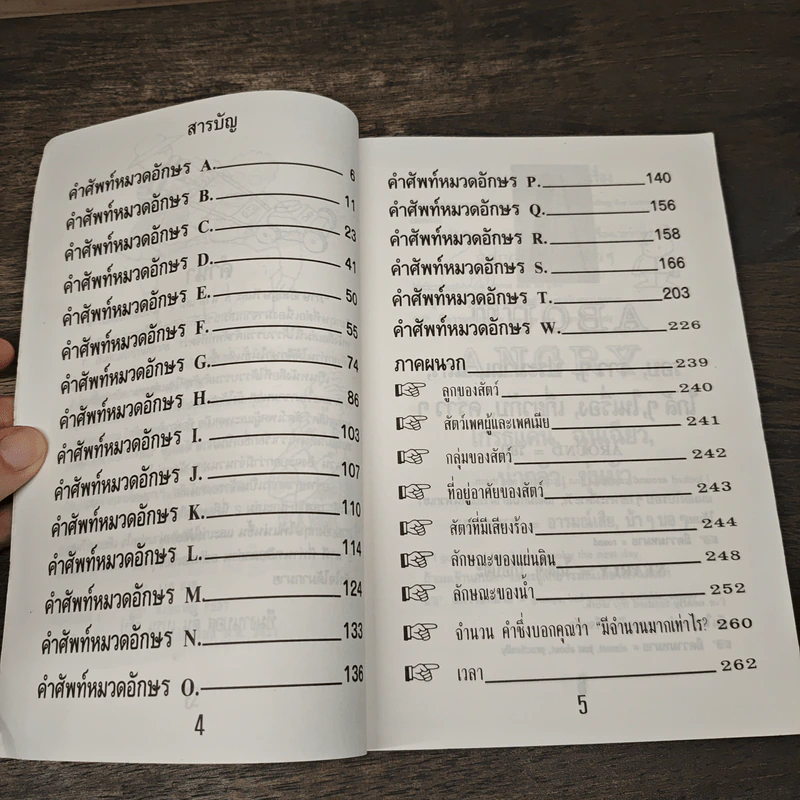 สารบัญ
คำศัพท์หมวดอักษร A. 6
คำศัพท์หมวดอักษร B. 11
คำศัพท์หมวดอักษร C. 23
คำศัพท์หมวดอักษร D. 41
คำศัพท์หมวดอักษร E. 50
คำศัพท์หมวดอักษร F. 55
คำศัพท์หมวดอักษร G. 74
คำศัพท์หมวดอักษร H. 86
คำศัพท์หมวดอักษร I. 103
คำศัพท์หมวดอักษร J. 107
คำศัพท์หมวดอักษร K. 110
คำศัพท์หมวดอักษร L. 114
คำศัพท์หมวดอักษร M. 124
คำศัพท์หมวดอักษร N. 133
คำศัพท์หมวดอักษร O. 136
4
คำศัพท์หมวดอักษร P. 140
คำศัพท์หมวดอักษร Q. 156
คำศัพท์หมวดอักษร R. 158
คำศัพท์หมวดอักษร S. 166
คำศัพท์หมวดอักษร T. 203
คำศัพท์หมวดอักษร W. 226
ภาคผนวก 239
ลูกของสัตว์ 240
สัตว์เพศผู้และเพศเมีย 241
กลุ่มของสัตว์ 242
ที่อยู่อาศัยของสัตว์ 243
สัตว์ที่มีเสียงร้อง 244
ลักษณะของแผ่นดิน 248
ลักษณะของน้ำ 252
จำนวน คำซึ่งบอกคุณว่า "มีจำนวนมากเท่าไร? 260
เวลา 262
5